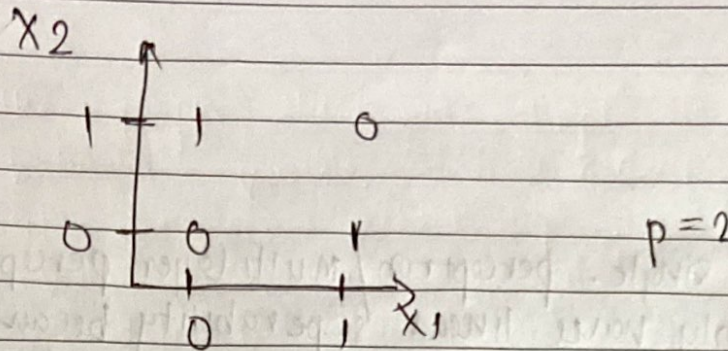 X2
1 1 0
0 0 1 p=2
0 1 X1